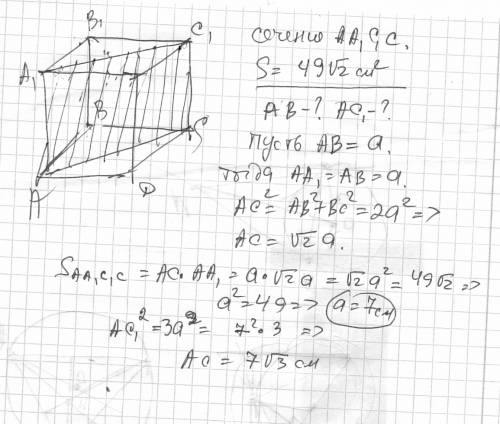 B₁
C₁
A₁
B
C
A
D
сечению AA₁C₁C.
S = 49√2 см²
AB-? AC₁-?
Пусть AB = a.
тогда AA₁ = AB = a.
AC² = AB²+BC² = 2a² =>
AC = √2 a.
S AA₁C₁C = AC·AA₁ = a·√2 a = √2 a² = 49√2 =>
a² = 49 => a = 7 см
AC₁² = 3a² = 7²·3 =>
AC = 7√3 см